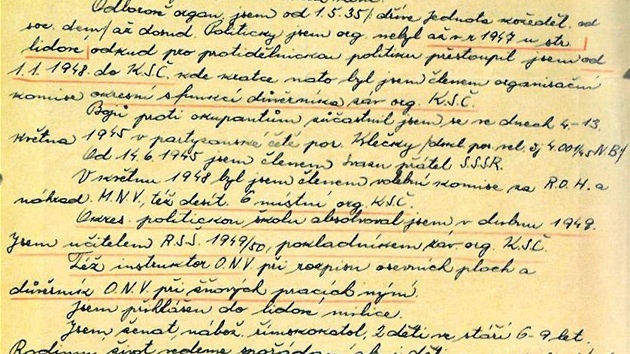 Odborově organ. jsem od 1.5.35 / dříve Jednota kožeděl. od
soc. dem/ až dosud. Politicky jsem org. nebyl až v r 1947 u str.
lidové odkud pro protidělnickou politiku přestoupil jsem od
1.1.1948. do K.S.Č. kde krátce nato byl jsem členem organisační
komise okresní s funkcí důvěrníka záv. org. K.S.Č.
Bojů proti okupantům súčastnil jsem se ve dnech 4.-13.
května 1945 v partyzánské četě por. Klečky /dekl. por. vel. čj 4.001/45 N.B/
Od 14.6.1945 jsem členem svazu přátel S.S.S.R.
V květnu 1948 byl jsem členem volební komise za R.O.H. a
náhrad. M.N.V, též desít. 6 místní org. K.S.Č.
Okres. politickou školu absolvoval jsem v dubnu 1949.
Jsem učitelem R.S.Š. 1949/50, pokladníkem záv. org. K.S.Č.
Též instruktor O.N.V. při rozpisu osevních ploch a
důvěrník O.N.V. při žňových pracích nyní.
Jsem přihlášen do lidové milice.
Jsem ženat, nábož. římskokatol, 2 děti ve stáří 6-9 let,
Rodinný život vedeme spořádaný